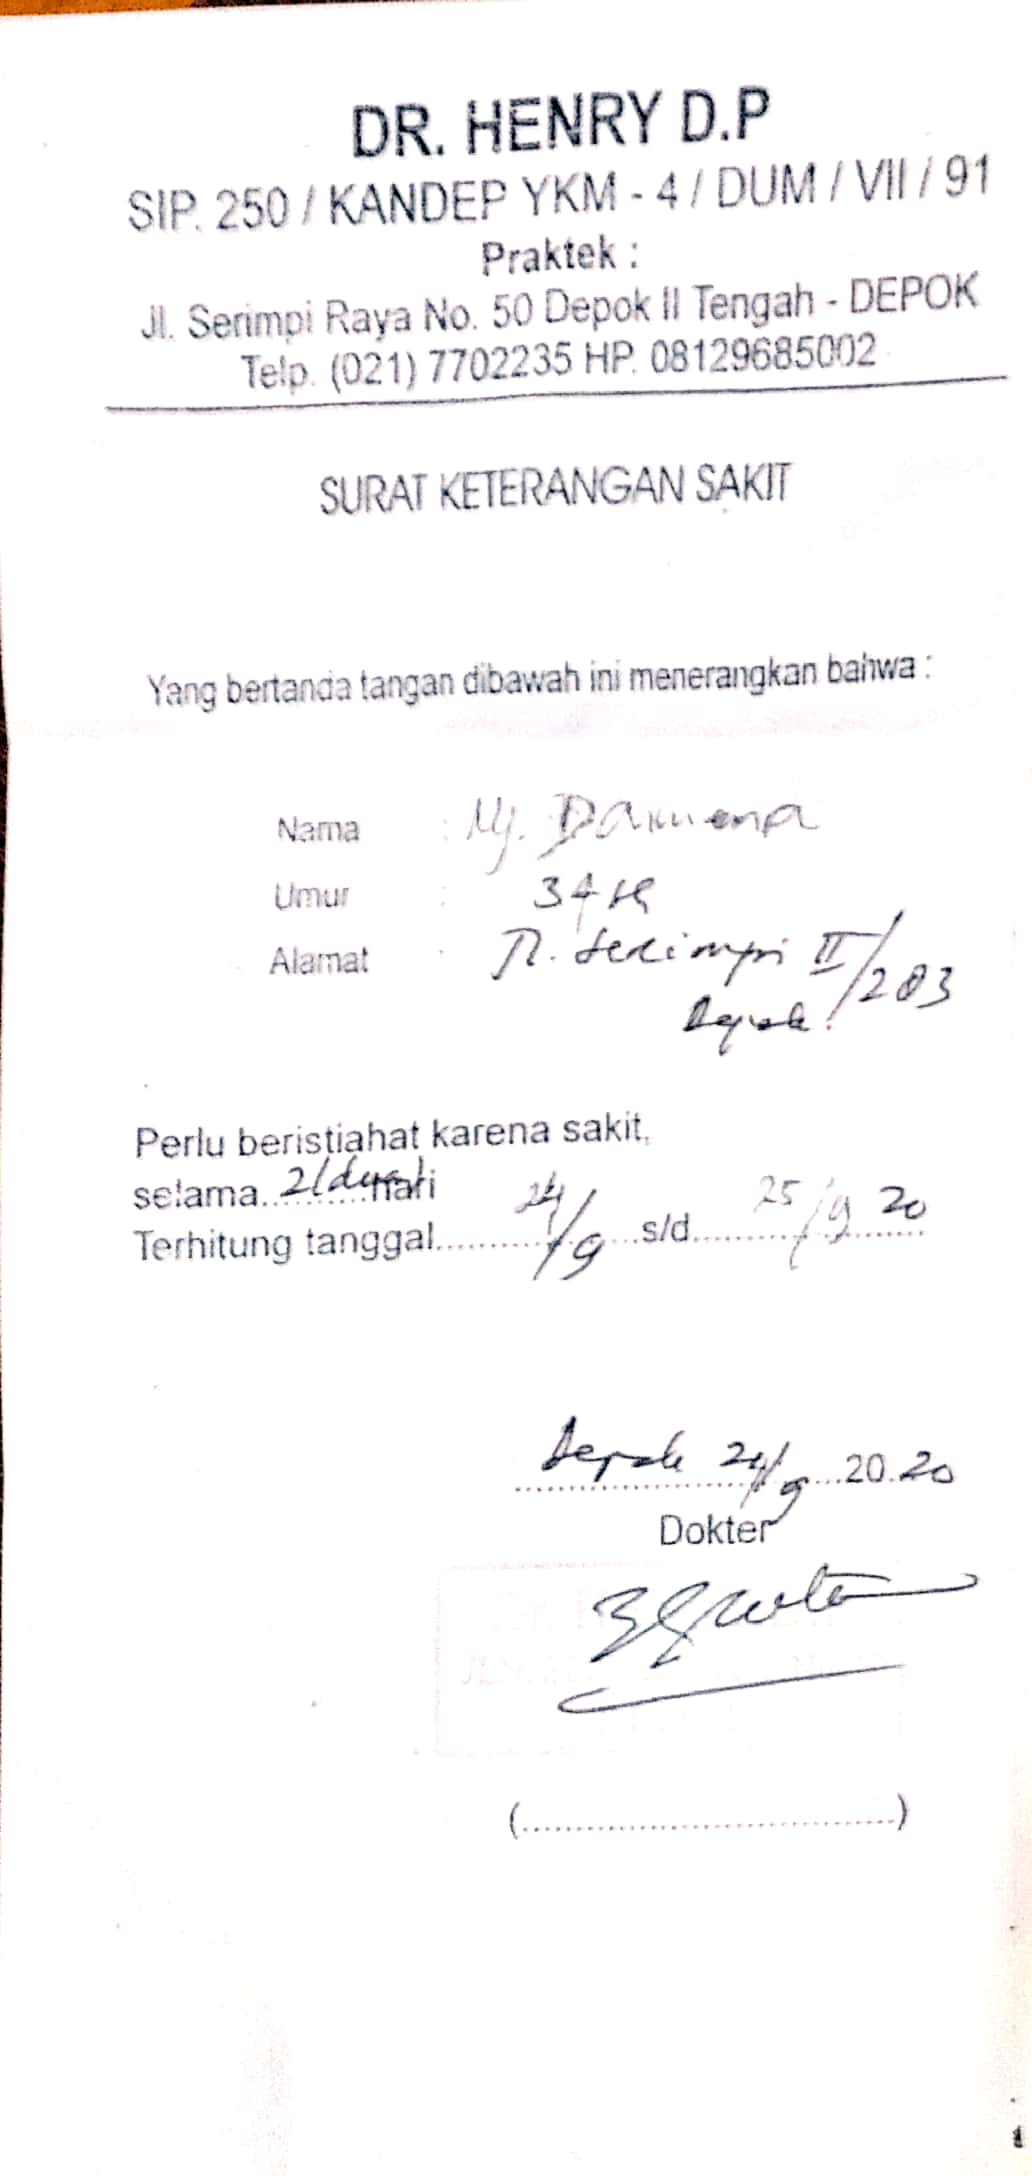 DR. HENRY D.P
SIP. 250 / KANDEP YKM - 4 / DUM / VII / 91
Praktek :
Jl. Serimpi Raya No. 50 Depok II Tengah - DEPOK
Telp. (021) 7702235 HP. 08129685002
SURAT KETERANGAN SAKIT
Yang bertanda tangan dibawah ini menerangkan bahwa :
Nama : Ny.
Umur : 34 th
Alamat : Jl. Serimpi II/283
Depok.
Perlu beristiahat karena sakit,
selama..2/dua/..hari
Terhitung tanggal..........24/9...s/d..........25/9 20
Depok 24/9 ...20.20
Dokter
(..................................)